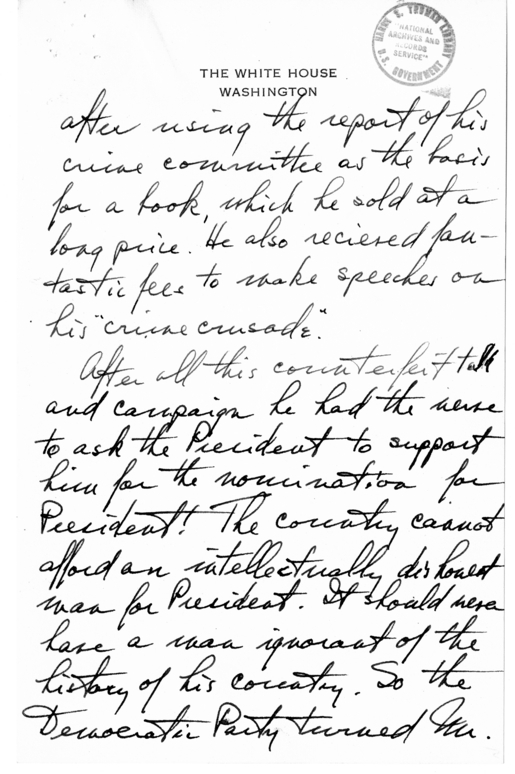 HARRY S. TRUMAN LIBRARY
"NATIONAL
ARCHIVES AND
RECORDS
SERVICE"
U.S. GOVERNMENT
THE WHITE HOUSE
WASHINGTON
after using the report of his
crime committee as the basis
for a book, which he sold at a
long price. He also recieved fan-
tastic fees to make speeches on
his "crime crusade".
After all this counterfeit talk
and campaign he had the nerve
to ask the President to support
him for the nomination for
President! The country cannot
afford an intellectually dishonest
man for President. It should never
have a man ignorant of the
history of his country. So the
Democratic Party turned Mr.